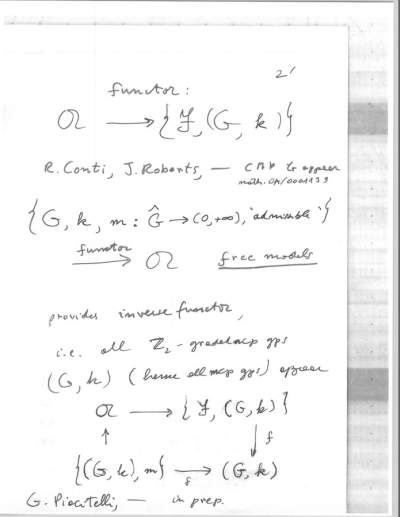 2'
functor:
𝔄 ⟶ {𝓕, (G, k)}
R. Conti, J. Roberts, — CMP to appear
math.OA/0001139
{G, k, m : Ĝ → (0,+∞), 'admissible'}
functor ⟶ 𝔄 free models
provides inverse functor,
i.e. all ℤ₂-graded cp gps
(G, k) (hence all cp gps) appear
𝔄 ⟶ {𝓕, (G, k)}
↑ ↓ f
{(G, k), m} ⟶ f (G, k)
G. Piacitelli, — in prep.